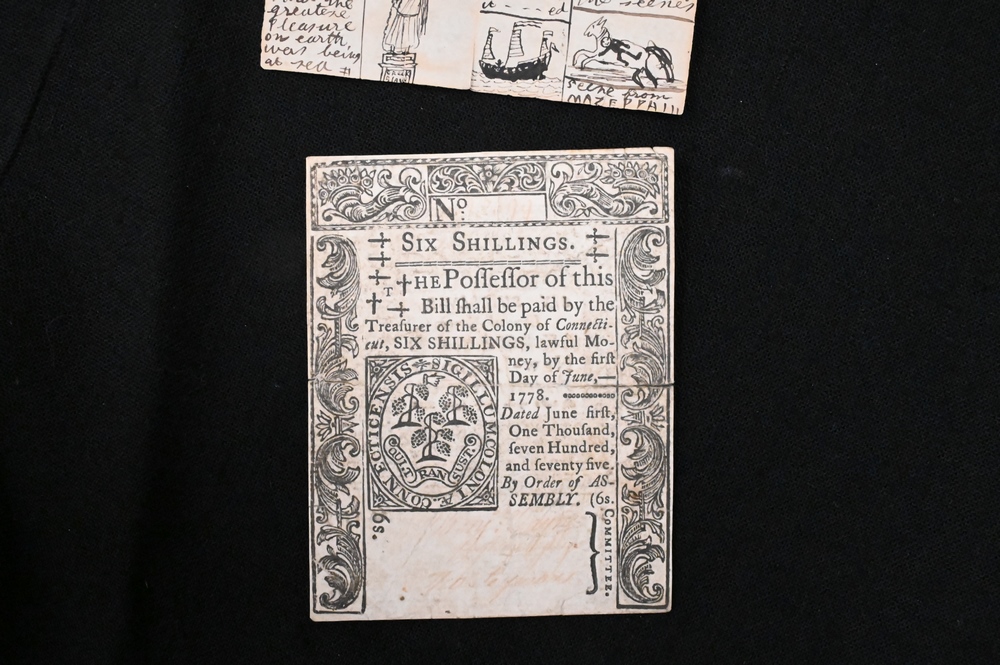 greatest
pleasure
on earth,
was being
at sea
ed
the scenes
scene from
MAZEPPA!!!
No.
SIX SHILLINGS.
THE Poſſeſſor of this
Bill ſhall be paid by the
Treaſurer of the Colony of Connecti-
cut, SIX SHILLINGS, lawful Mo-
ney, by the firſt
Day of June,
1778.
Dated June firſt,
One Thouſand,
ſeven Hundred,
and ſeventy five.
By Order of AS-
SEMBLY. (6s.
SIGILLUM. COLONIÆ. CONNECTICENSIS
QUI. TRAN. SUST.
6s.
COMMITTEE.